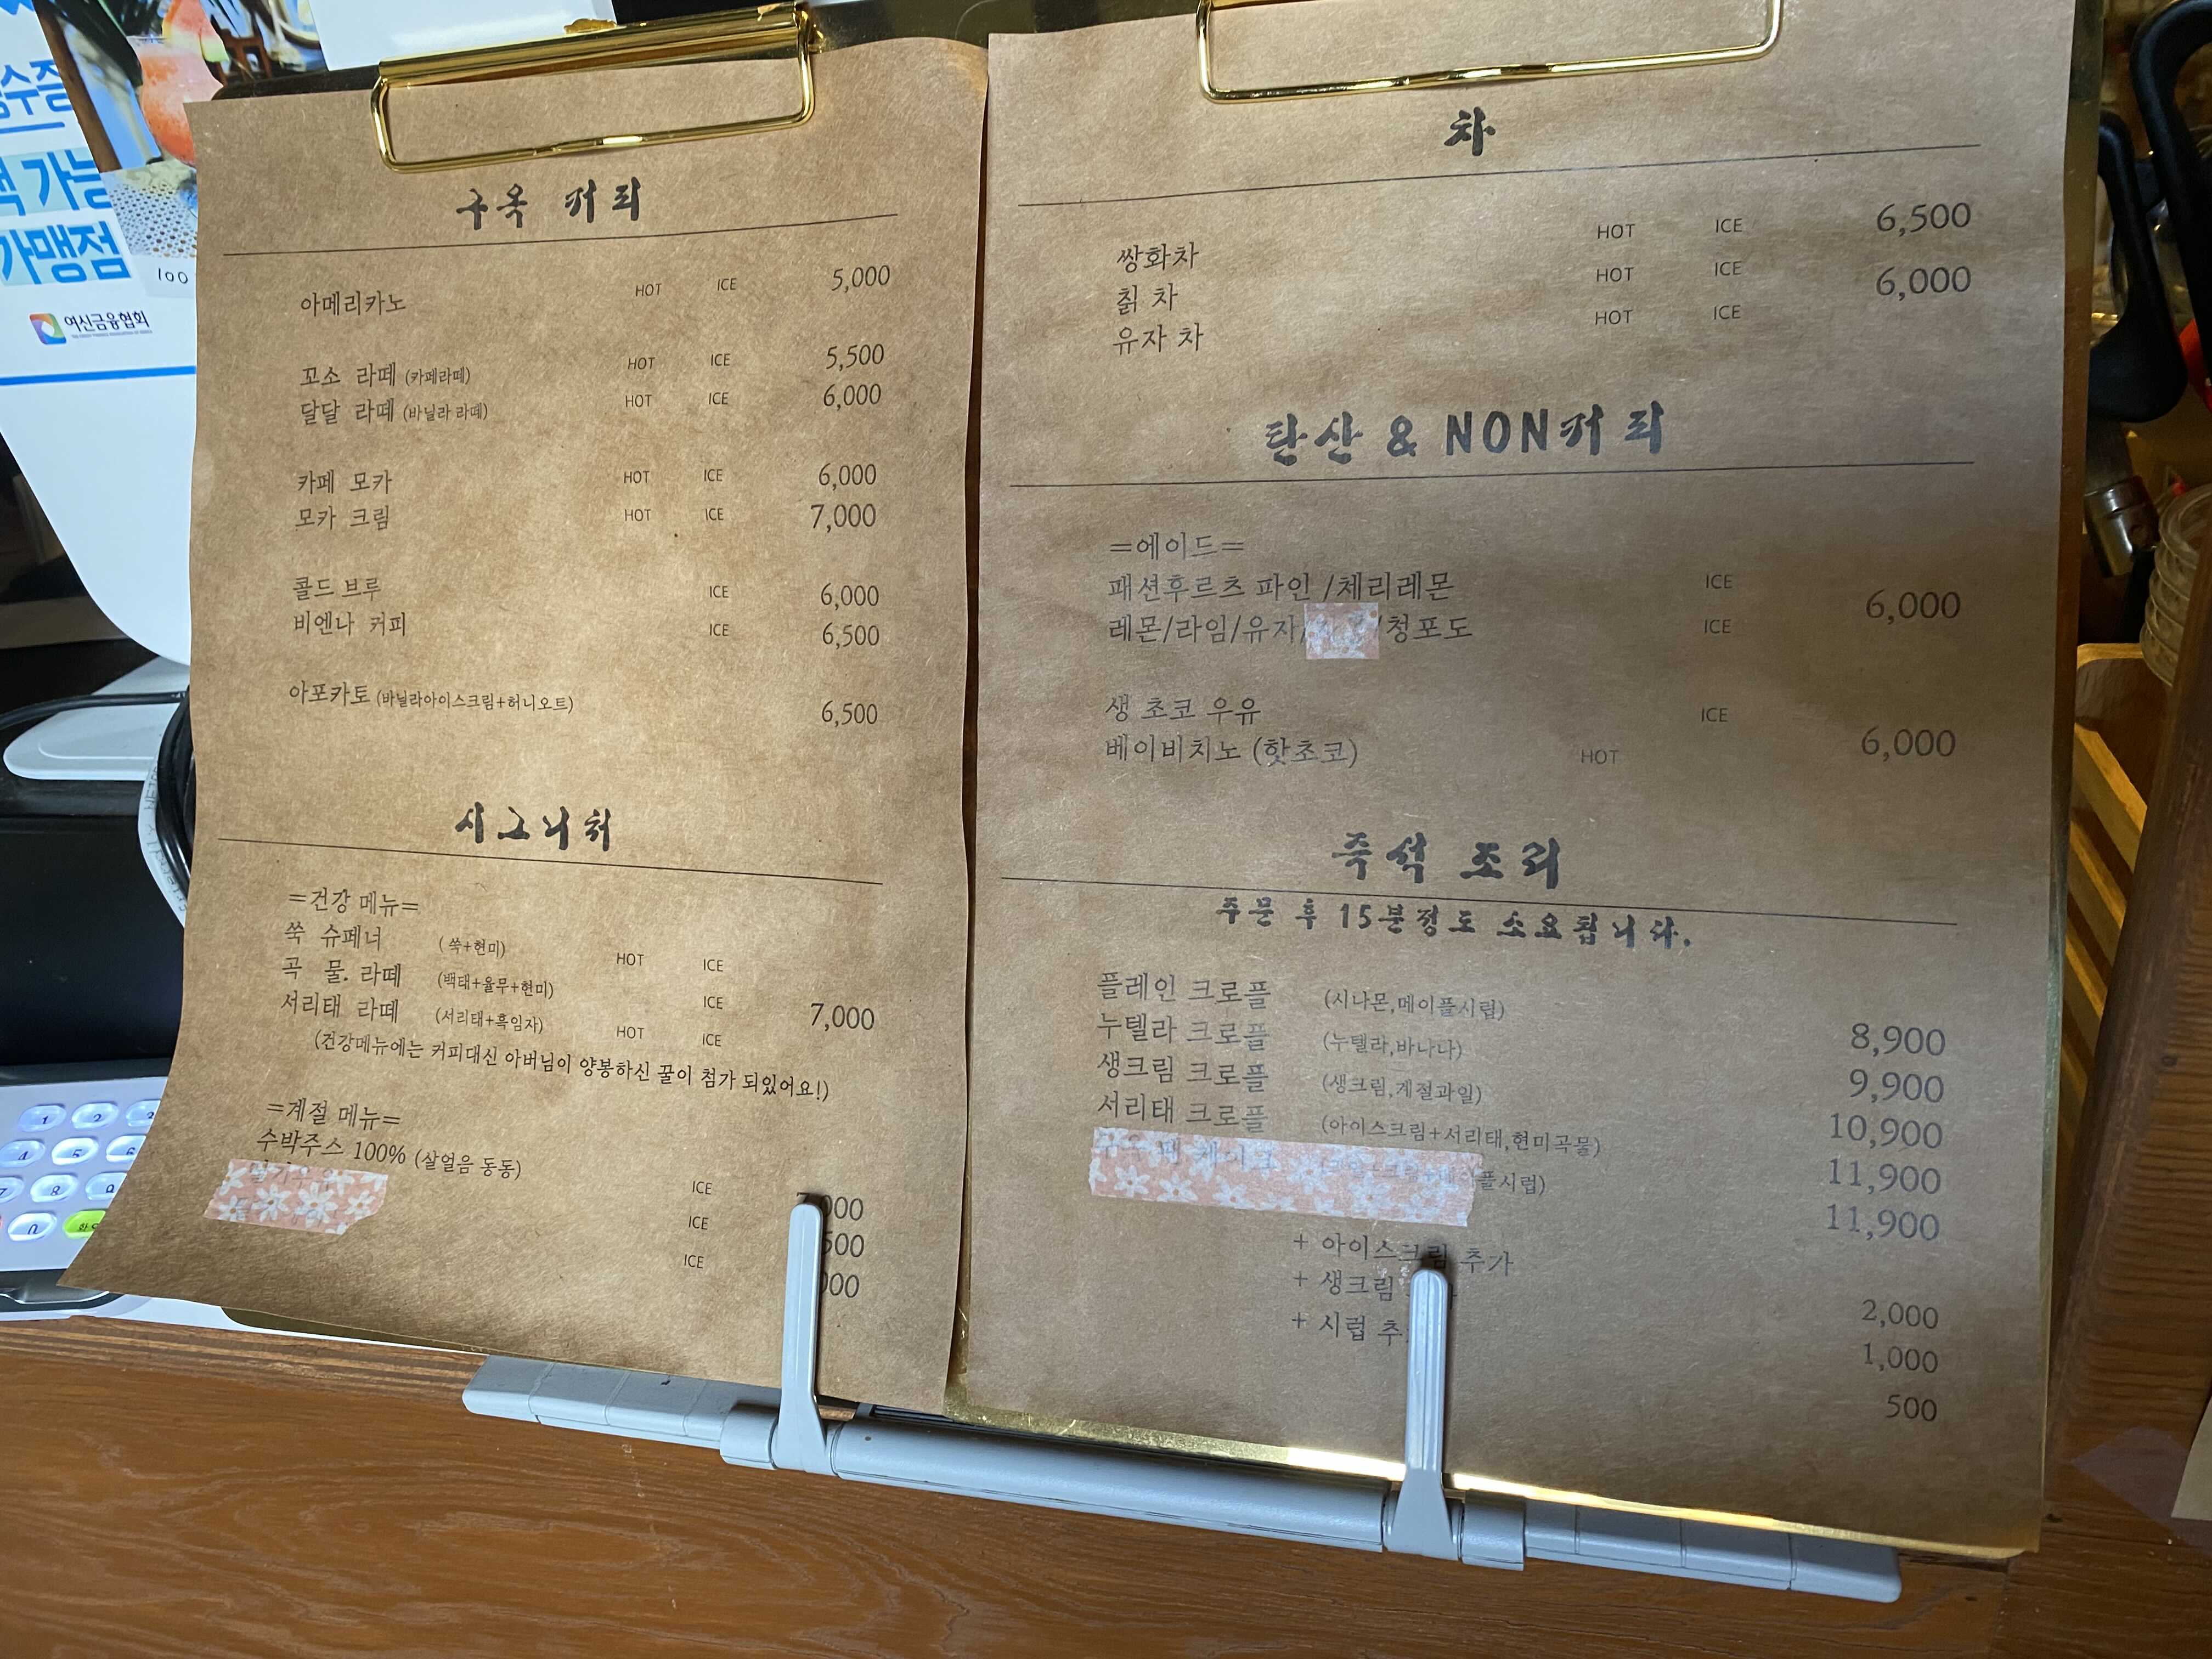 가능
가맹점
100
여신금융협회
구옥 커피
아메리카노 HOT ICE 5,000
꼬소 라떼 (카페라떼) HOT ICE 5,500
달달 라떼 (바닐라 라떼) HOT ICE 6,000
카페 모카 HOT ICE 6,000
모카 크림 HOT ICE 7,000
콜드 브루 ICE 6,000
비엔나 커피 ICE 6,500
아포카토 (바닐라아이스크림+허니오트) 6,500
시그니처
=건강 메뉴=
쑥 슈페너 (쑥+현미) HOT ICE
곡 물. 라떼 (백태+율무+현미) ICE 7,000
서리태 라떼 (서리태+흑임자) HOT ICE
(건강메뉴에는 커피대신 아버님이 양봉하신 꿀이 첨가 되있어요!)
=계절 메뉴=
수박주스 100% (살얼음 동동) ICE
ICE
ICE
차
쌍화차 HOT ICE 6,500
칡 차 HOT ICE 6,000
유자 차 HOT ICE
탄산 & NON커피
=에이드=
패션후르츠 파인 /체리레몬 ICE 6,000
레몬/라임/유자/ /청포도 ICE
생 초코 우유 ICE 6,000
베이비치노 (핫초코) HOT
즉석 조리
주문 후 15분정도 소요됩니다.
플레인 크로플 (시나몬,메이플시럽) 8,900
누텔라 크로플 (누텔라,바나나) 9,900
생크림 크로플 (생크림,계절과일) 10,900
서리태 크로플 (아이스크림+서리태,현미곡물) 11,900
11,900
+ 아이스크림 추가 2,000
+ 생크림 1,000
+ 시럽 500